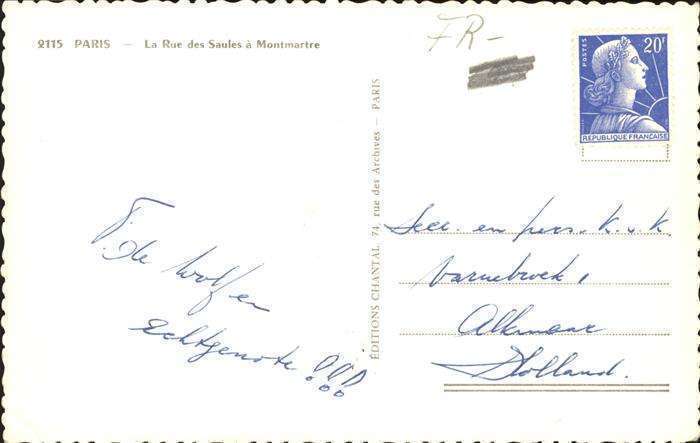 2115 PARIS — La Rue des Saules à Montmartre
FR-
POSTES
20F
REPUBLIQUE FRANÇAISE
ÉDITIONS CHANTAL, 74, rue des Archives - PARIS
T. de Wolf en
echtgenote !!!
en pers. K. v. K.
Varnebroek 1
Alkmaar
Holland.